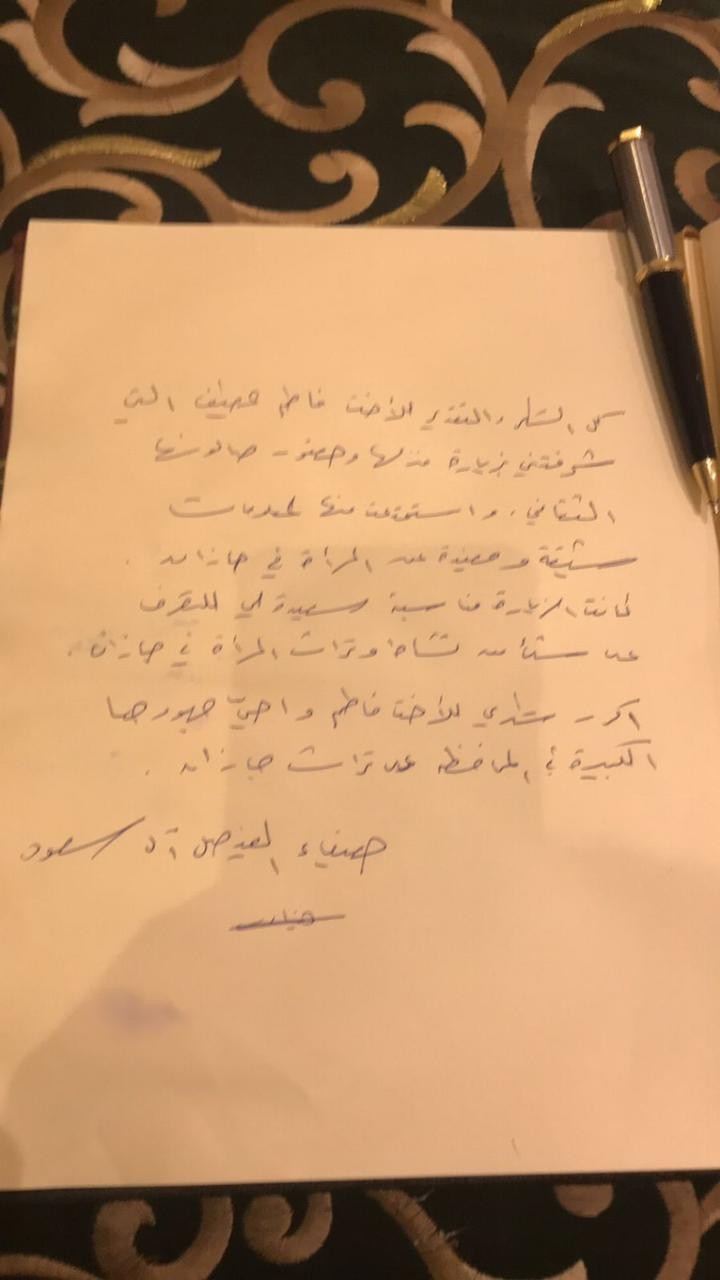 كل الشكر والتقدير للأخت فاطم عطيف التي
شرفتني بزيارة منزلها وحضور صالونها
الثقافي، واستمتعت منها لمعلومات
شيقة ومفيدة عن المرأة في جازان .
كانت الزيارة مناسبة سعيدة لي للتعرف
على شئ من نشاط وتراث المرأة في جازان .
اكرر شكري للأخت فاطم واحيّ جهودها
الكبيرة في المحافظه على تراث جازان .
هيفاء الفيصل آل سعود